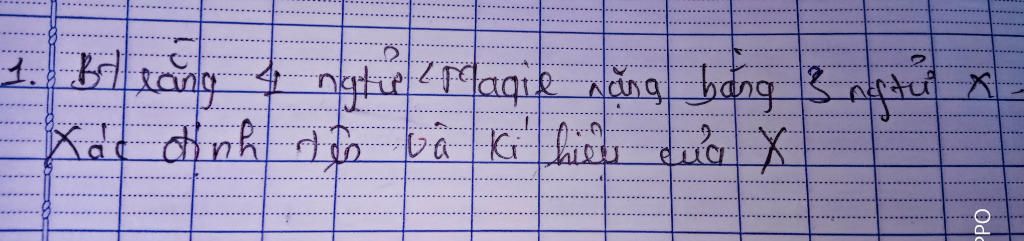 1. Bt rằng 4 ngtử Magie nặng bằng 3 ngtử X.
Xác định tên và kí hiệu của X
PPO